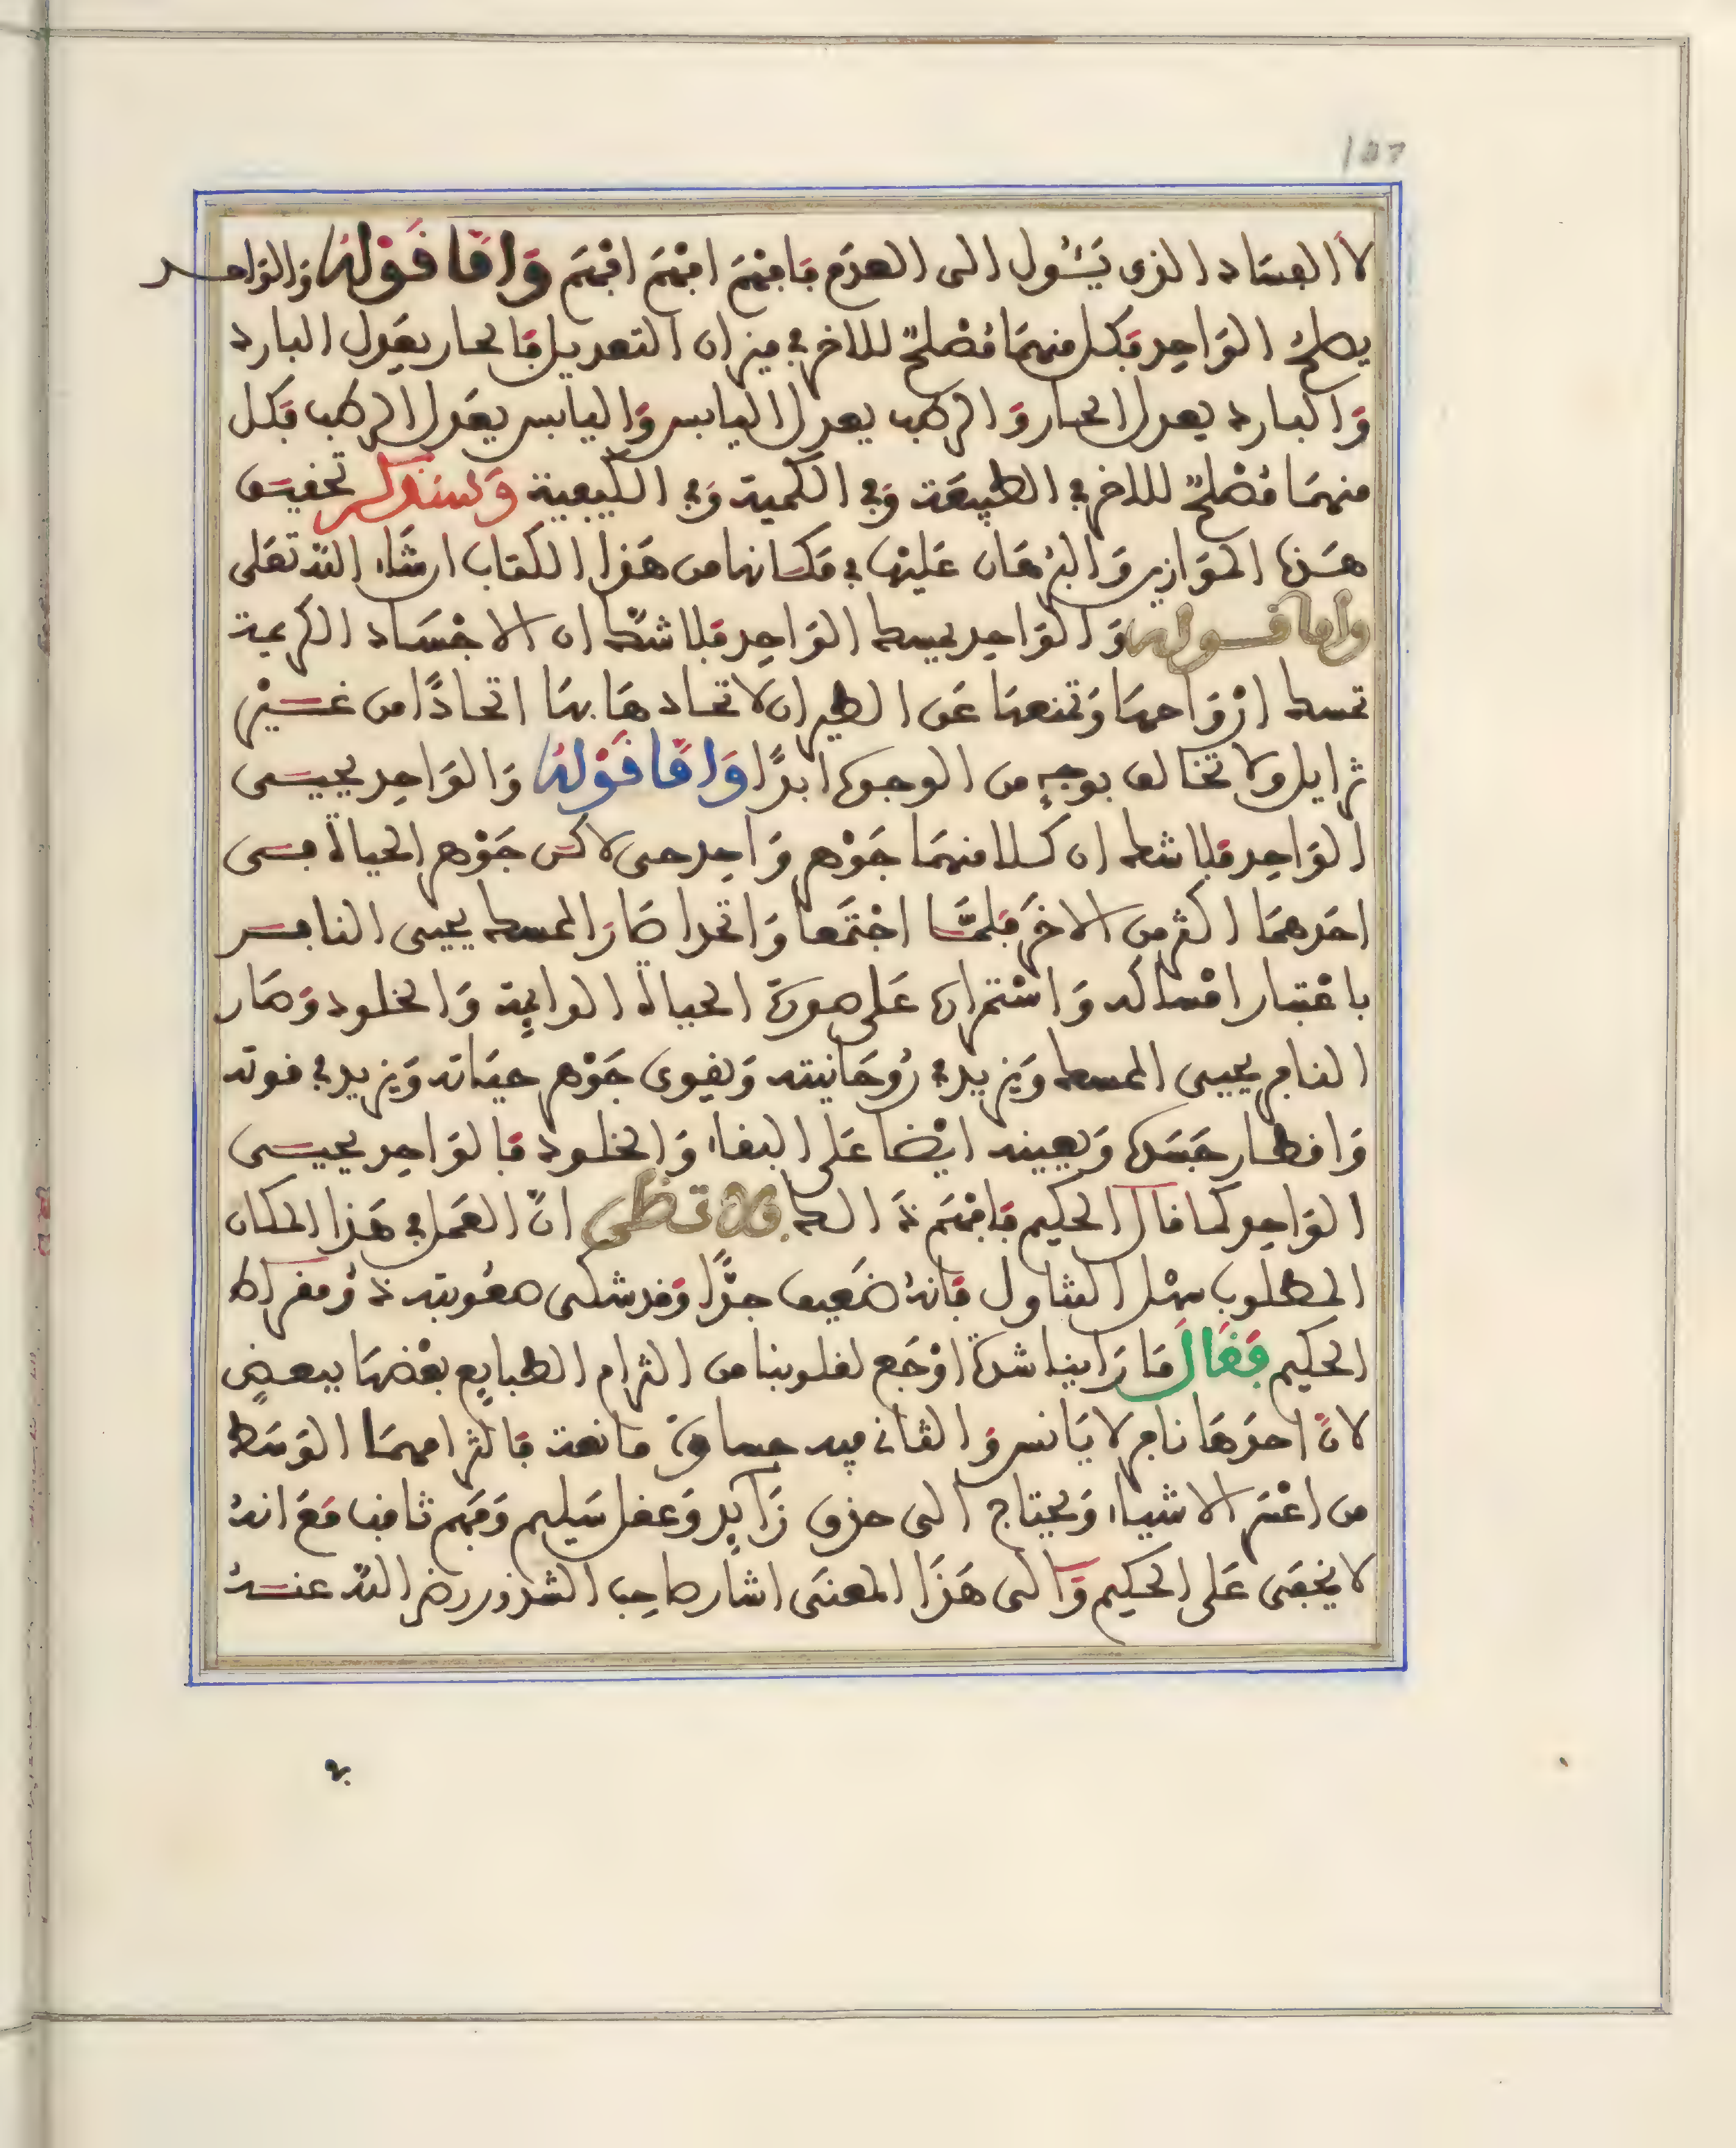 107
لا الفساد الذي يَئُول الى العدَم فافهَم افهَم افهَم وَامّا قَوْلهُ وَالوَاحد
يصلحُ الوَاحِد فكل منهمَا مُصْلحٌ للاخر في ميزان التعديل فالحار يعَدل البارد
وَالبارد يعدل الحار وَالرطب يعدل اليابس وَاليابس يعَدل الرطب فكل
منهمَا مُصْلحٌ للاخر في الطبيعَة وَفي الكمية وَفي الكيفية وَسنذكر تحقيق
هَذه الموَازين وَالبرْهَان عَليْها في مَكانها من هَذا الكتاب ان شَاء اللّه تعَلى
وامّا قوله وَالوَاحد يمسك الوَاحِد فلا شكّ ان الاجْسَاد الكريمة
تمسك ارْوَاحهَا وَتمنعهَا عَن الطيران لاتحادهَا بهَا اتحَادًا من غَيْر
تزايل ولا تخالف بوجهٍ من الوجوه ابدًا وَامّا قَوْلهُ وَالوَاحِد يحيى
الوَاحِد فلا شك ان كلا منهمَا جَوْهر وَاحِد حى لاكن جَوْهر الحياة في
احَدهمَا اكثر من الاخَر فلمّا اجْتمَعا وَاتحدا صَارَ الممسك يحيى النافر
باعْتبار امْساكه وَاسْتمراره عَلى صورَة الحياة الدايمة وَالخلود وَصَار
النافر يحيى الممسك وَيزيد في رُوحَانيته وَيقوى جَوْهر حيَاته وَيزيد في قوته
وَاقطار جسَده وَيعينه ايْضا عَلى البقاء وَالخلود فالوَاحِد يحيى
الوَاحِد كما قال الحكيم فافهَم ذَ الك ولا تظن انّ العَمل في هَذا المكان
المطلوب سهْل التناول فانهُ ضَعيف جدًّا وَقد شكى صعُوبته ذُ ومقراط
الحكيم فقَالَ مَا رَاينا شدة اوْجَع لقلوبنا من التزام الطبايع بعْضهَا ببعضٍ
لانّ احدَهَا نافر لا يَانس وَالثاني فيه جساوَة مانعة فالتزامهمَا الوَسَط
من اعْسَر الاشياء وَيحتاج الى حذق زَايد وَعقل سَليم وَفهَم ثاقب مَعَ انهُ
لا يخفى عَلى الحكيم وَالى هَذَا المعنَى اشار صاحِب الشذور رضي اللّه عنهُ